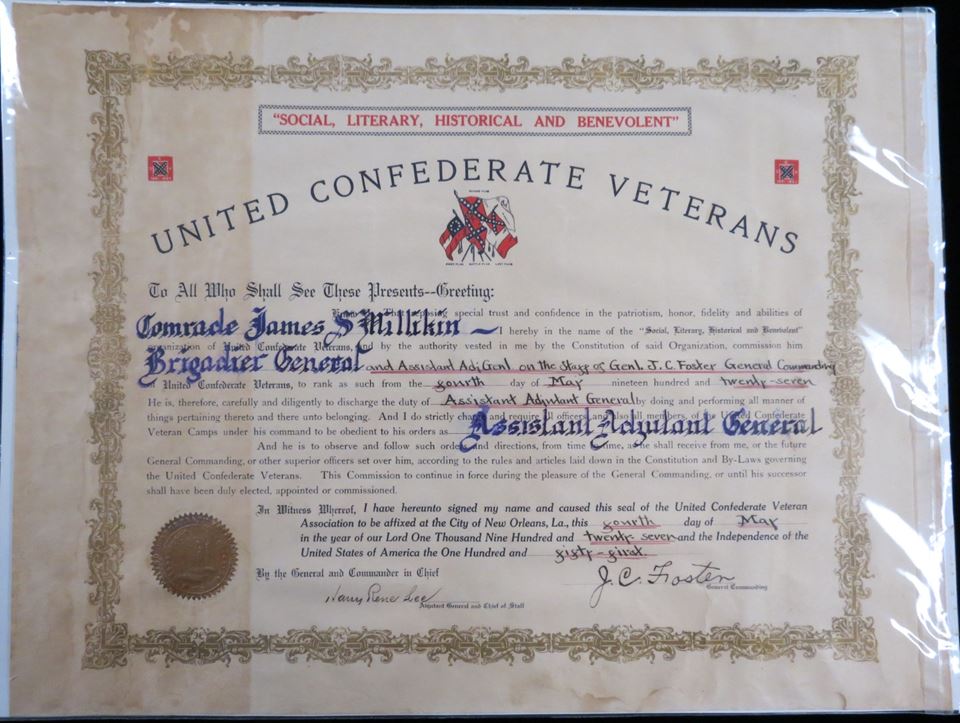 "SOCIAL, LITERARY, HISTORICAL AND BENEVOLENT"
UNITED CONFEDERATE VETERANS
To All Who Shall See These Presents--Greeting:
That reposing special trust and confidence in the patriotism, honor, fidelity and abilities of
Comrade James S Millikin — I hereby in the name of the "Social, Literary, Historical and Benevolent"
organization of United Confederate Veterans, and by the authority vested in me by the Constitution of said Organization, commission him
Brigadier General and Assistant Adj. Genl. on the Staff of Genl. J. C. Foster General Commanding
of United Confederate Veterans, to rank as such from the fourth day of May nineteen hundred and twenty-seven
He is, therefore, carefully and diligently to discharge the duty of Assistant Adjutant General by doing and performing all manner of
things pertaining thereto and there unto belonging. And I do strictly charge and require all officers, and also all members, of the United Confederate
Veteran Camps under his command to be obedient to his orders as Assistant Adjutant General
And he is to observe and follow such orders and directions, from time to time, as he shall receive from me, or the future
General Commanding, or other superior officers set over him, according to the rules and articles laid down in the Constitution and By-Laws governing
the United Confederate Veterans. This Commission to continue in force during the pleasure of the General Commanding, or until his successor
shall have been duly elected, appointed or commissioned.
In Witness Whereof, I have hereunto signed my name and caused this seal of the United Confederate Veteran
Association to be affixed at the City of New Orleans, La., this fourth day of May
in the year of our Lord One Thousand Nine Hundred and twenty-seven and the Independence of the
United States of America the One Hundred and fifty-first.
By the General and Commander in Chief
J. C. Foster
General Commanding
Harry Rene Lee
Adjutant General and Chief of Staff